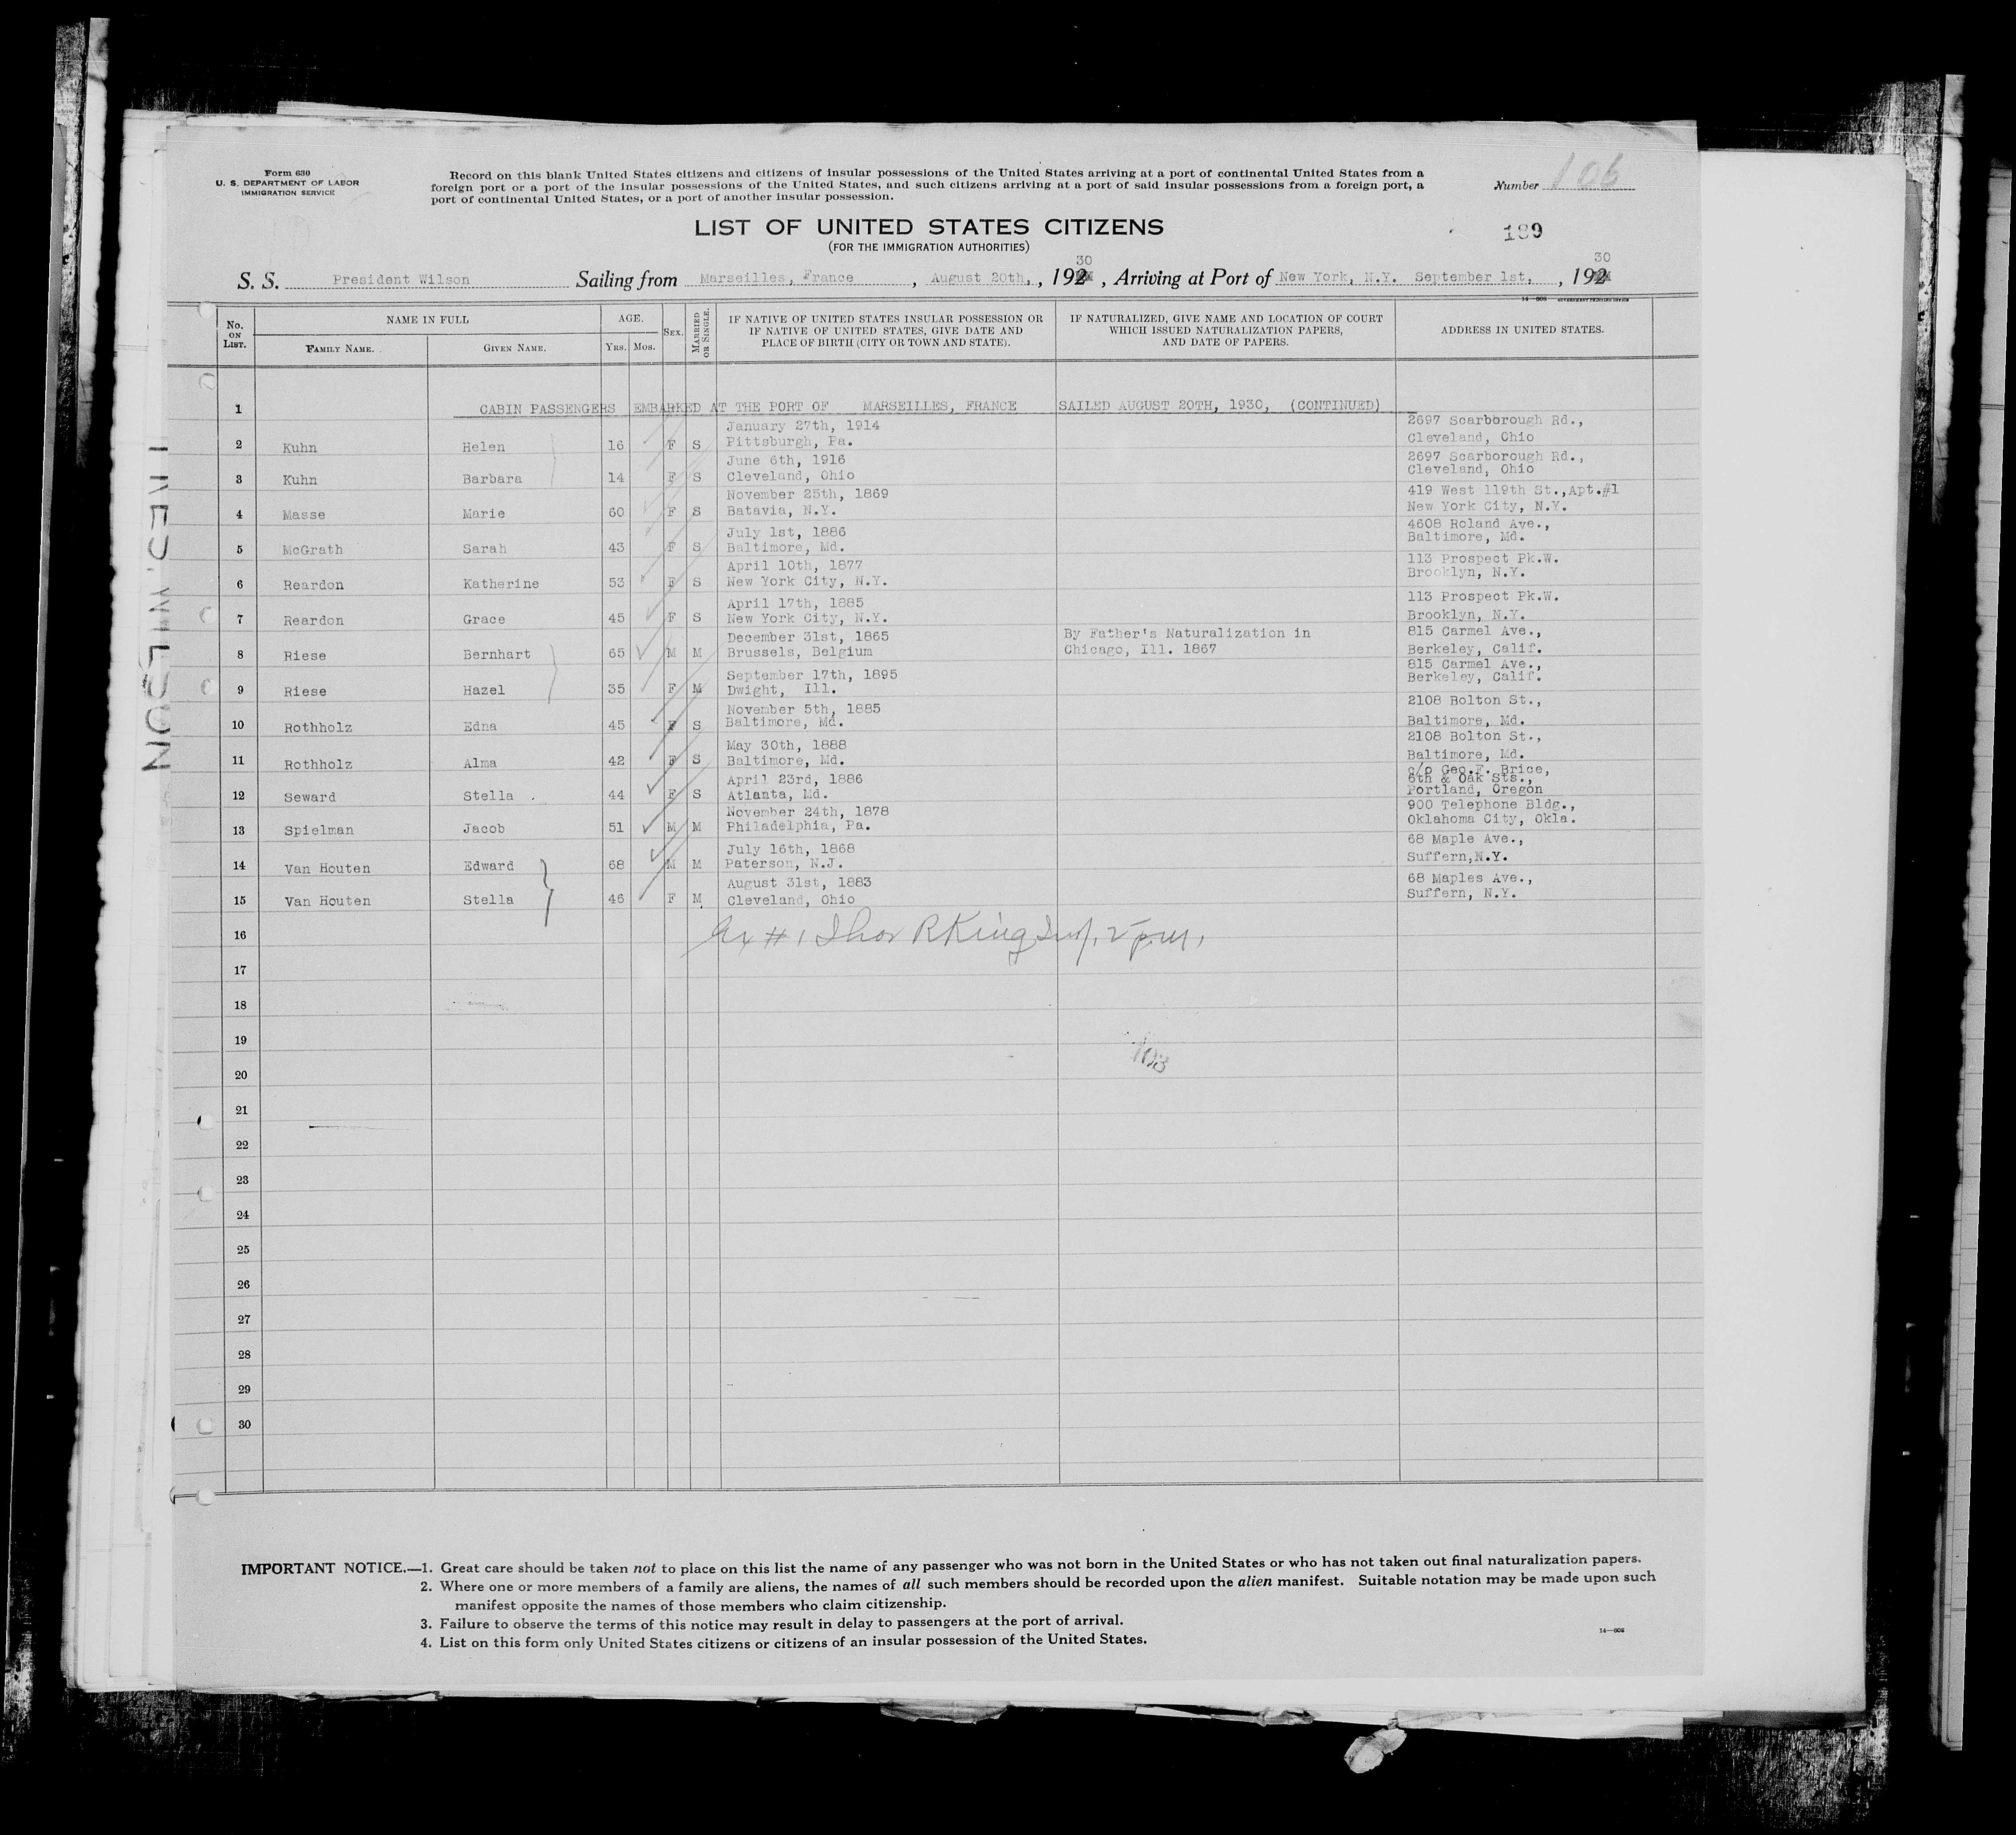 Form 630
U. S. DEPARTMENT OF LABOR
IMMIGRATION SERVICE
Record on this blank United States citizens and citizens of insular possessions of the United States arriving at a port of continental United States from a
foreign port or a port of the insular possessions of the United States, and such citizens arriving at a port of said insular possessions from a foreign port, a
port of continental United States, or a port of another insular possession.
Number 106
LIST OF UNITED STATES CITIZENS
(FOR THE IMMIGRATION AUTHORITIES)
189
S. S. President Wilson Sailing from Marseilles, France, August 20th, , 192 30, Arriving at Port of New York, N.Y. September 1st, , 192 30
No. ON LIST. NAME IN FULL AGE. SEX. MARRIED OR SINGLE. IF NATIVE OF UNITED STATES INSULAR POSSESSION OR IF NATIVE OF UNITED STATES, GIVE DATE AND PLACE OF BIRTH (CITY OR TOWN AND STATE). IF NATURALIZED, GIVE NAME AND LOCATION OF COURT WHICH ISSUED NATURALIZATION PAPERS, AND DATE OF PAPERS. ADDRESS IN UNITED STATES.
FAMILY NAME. GIVEN NAME. YRS. MOS.
1 CABIN PASSENGERS EMBARKED AT THE PORT OF MARSEILLES, FRANCE SAILED AUGUST 20TH, 1930, (CONTINUED)
2 Kuhn Helen 16 F S January 27th, 1914 Pittsburgh, Pa. 2697 Scarborough Rd., Cleveland, Ohio
3 Kuhn Barbara 14 F S June 6th, 1916 Cleveland, Ohio 2697 Scarborough Rd., Cleveland, Ohio
4 Masse Marie 60 F S November 25th, 1869 Batavia, N.Y. 419 West 119th St.,Apt.#1 New York City, N.Y.
5 McGrath Sarah 43 F S July 1st, 1886 Baltimore, Md. 4608 Roland Ave., Baltimore, Md.
6 Reardon Katherine 53 F S April 10th, 1877 New York City, N.Y. 113 Prospect Pk.W. Brooklyn, N.Y.
7 Reardon Grace 45 F S April 17th, 1885 New York City, N.Y. 113 Prospect Pk.W. Brooklyn, N.Y.
8 Riese Bernhart 65 M M December 31st, 1865 Brussels, Belgium By Father's Naturalization in Chicago, Ill. 1867 815 Carmel Ave., Berkeley, Calif.
9 Riese Hazel 35 F M September 17th, 1895 Dwight, Ill. 815 Carmel Ave., Berkeley, Calif.
10 Rothholz Edna 45 F S November 5th, 1885 Baltimore, Md. 2108 Bolton St., Baltimore, Md.
11 Rothholz Alma 42 F S May 30th, 1888 Baltimore, Md. 2108 Bolton St., Baltimore, Md.
12 Seward Stella 44 F S April 23rd, 1886 Atlanta, Md. c/o Geo.F. Brice, 6th & Oak Sts., Portland, Oregon
13 Spielman Jacob 51 M M November 24th, 1878 Philadelphia, Pa. 900 Telephone Bldg., Oklahoma City, Okla.
14 Van Houten Edward 68 M M July 16th, 1868 Paterson, N.J. 68 Maple Ave., Suffern,N.Y.
15 Van Houten Stella 46 F M August 31st, 1883 Cleveland, Ohio 68 Maples Ave., Suffern, N.Y.
16 # 1 RKing
17
18
19
103
20
21
22
23
24
25
26
27
28
29
30
IMPORTANT NOTICE.—1. Great care should be taken not to place on this list the name of any passenger who was not born in the United States or who has not taken out final naturalization papers.
2. Where one or more members of a family are aliens, the names of all such members should be recorded upon the alien manifest. Suitable notation may be made upon such
manifest opposite the names of those members who claim citizenship.
3. Failure to observe the terms of this notice may result in delay to passengers at the port of arrival.
4. List on this form only United States citizens or citizens of an insular possession of the United States.
14—608
PRES. WILSON